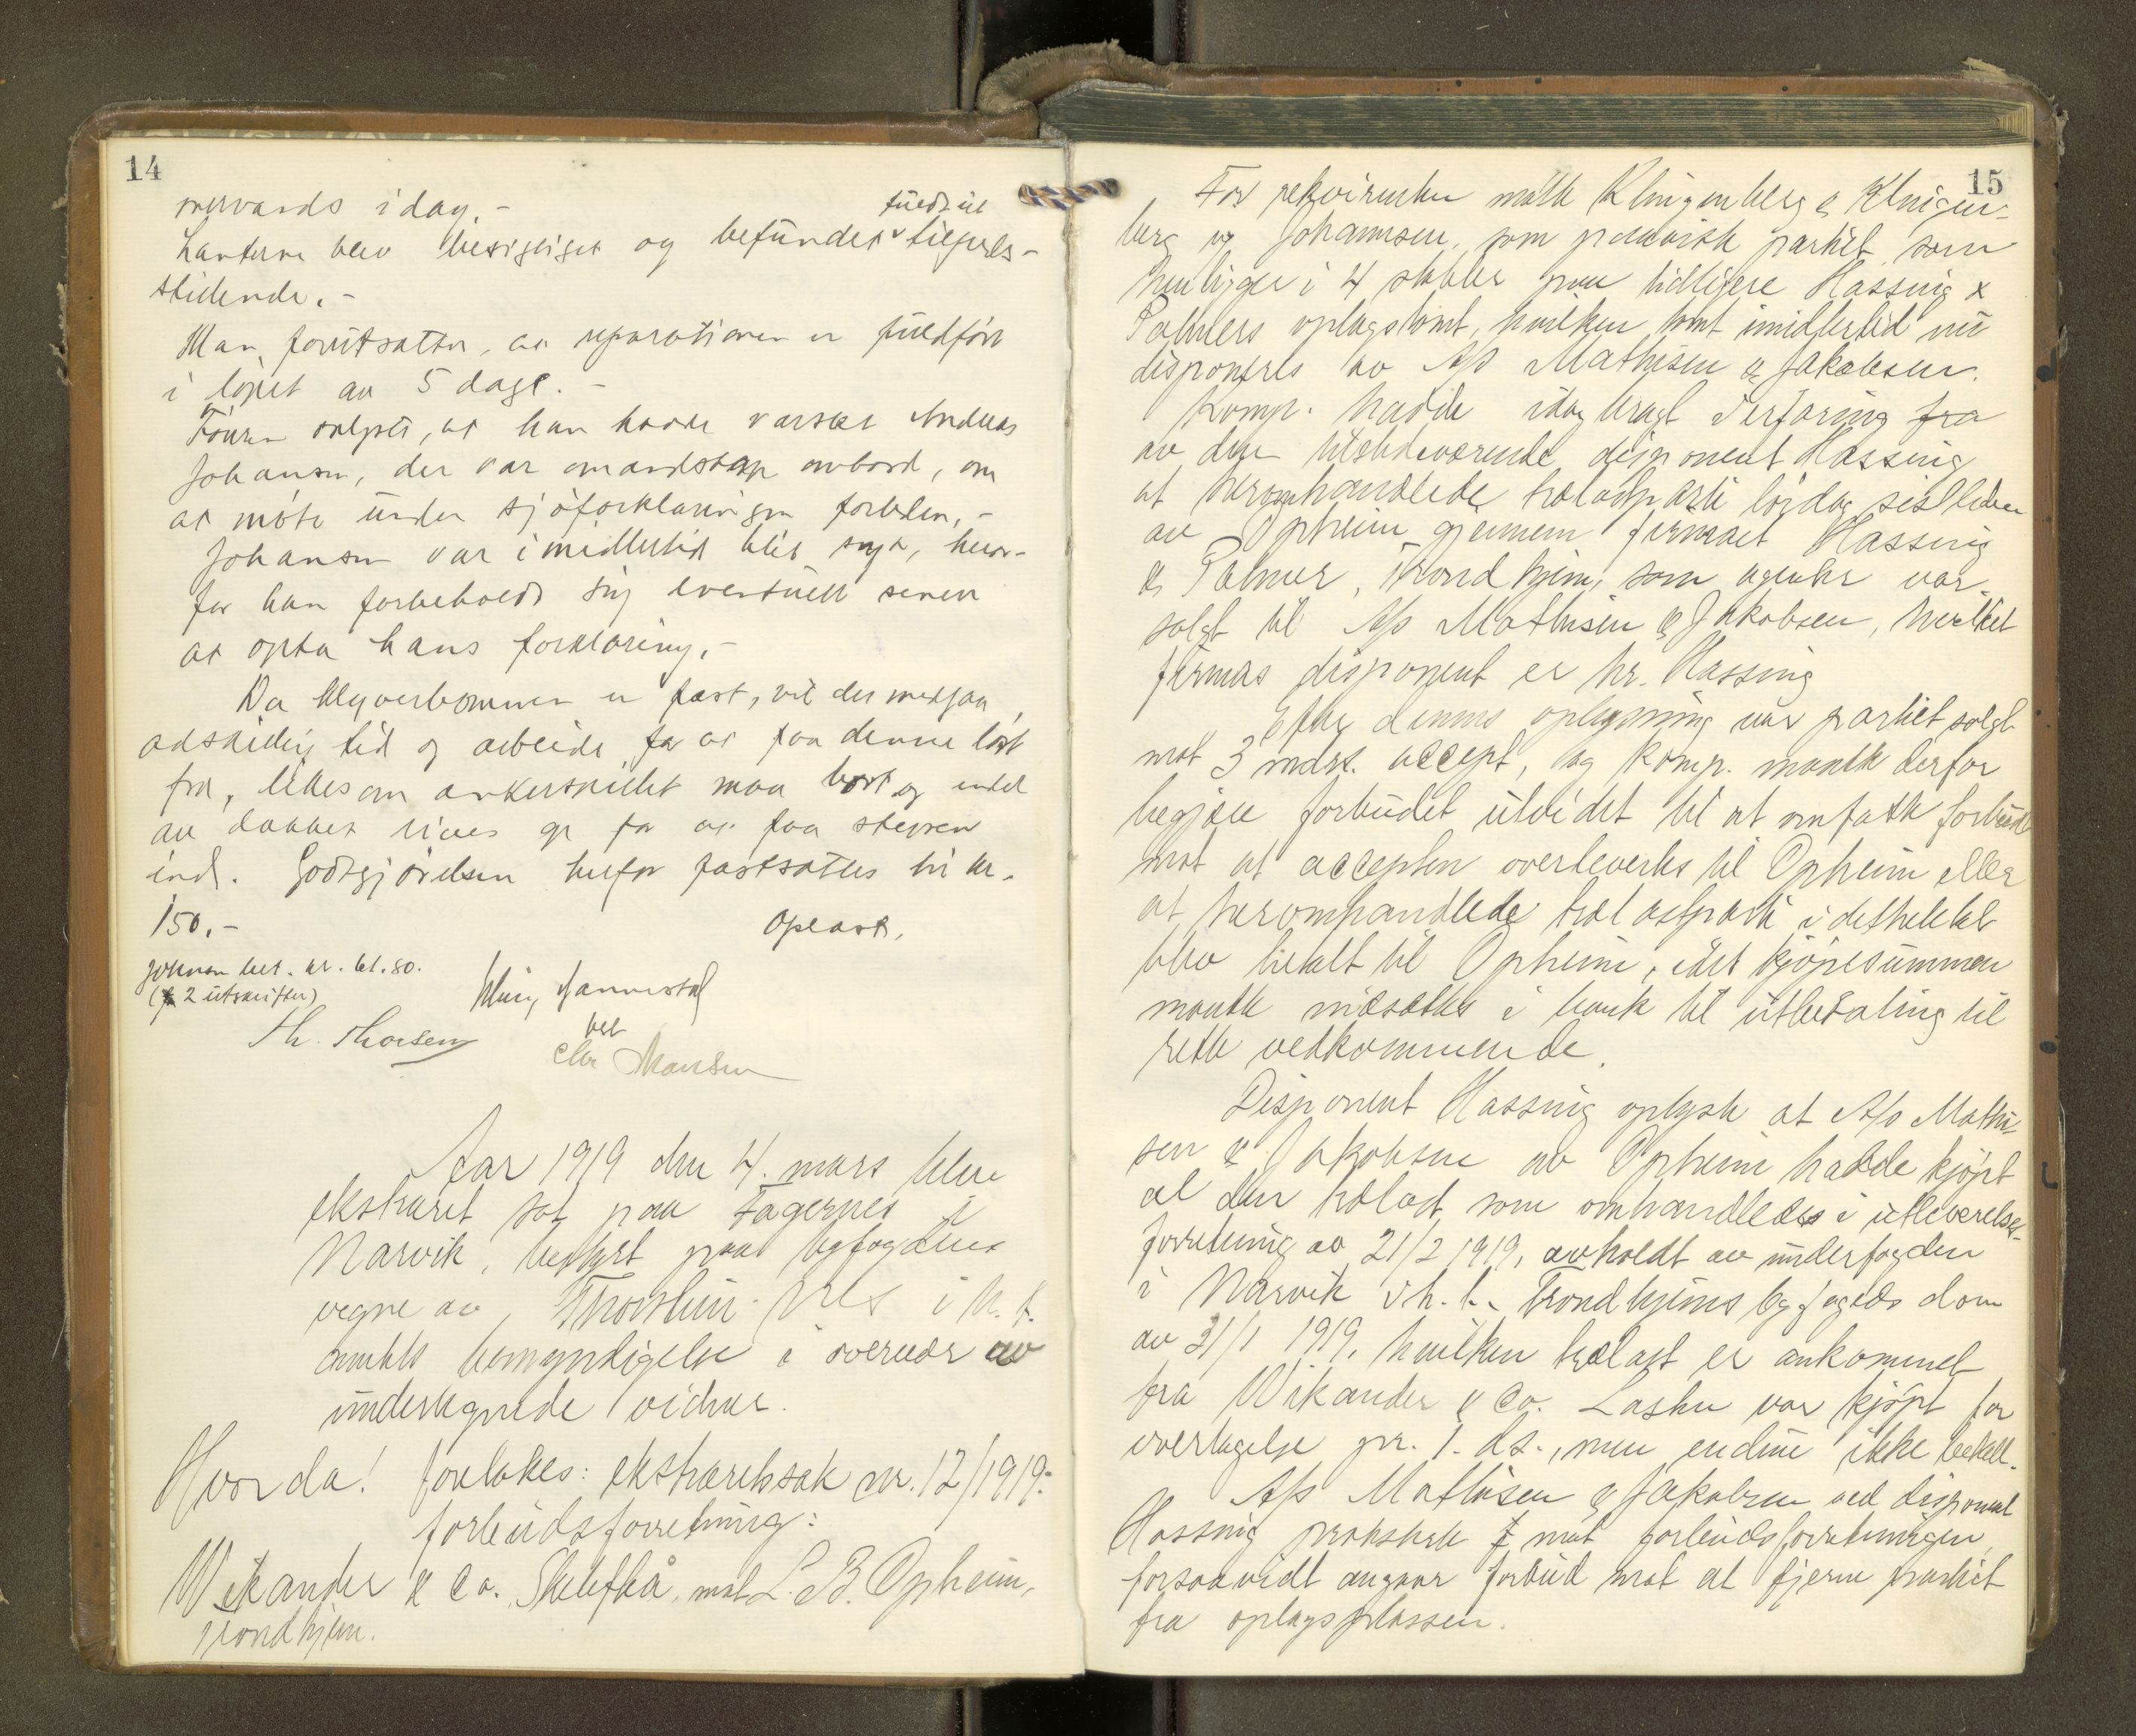 14
nervands idag. -
fuldt ut
Lanterne blev besigtiget og befundet tilfreds-
stillende. -
Man forutsætter, at reparationen er fuldført
i løpet av 5 dage. -
Føreren oplyste, at han hadde varslet Andreas
Johansen, der var mandskap ombord, om
at møte under sjøforklaringen forleden. -
Johansen var imidlertid blit syk, hvor-
for han forbeholdt sig eventuelt senere
at opta hans forklaring. -
Da klyverbommen er fast, vil der medgaa
adskillig tid og arbeide for at faa denne løst
fra, likesom ankerspillet maa bort og endel
av dækket rives op for at faa stevnen
ind. Godtgjørelsen herfor fastsættes til kr.
150.-
Oplæst.
Johnsen bet. kr. 61.80.
(2 utskrifter)
Th. Thorsen
Chr Hansen
Aar 1919 den 4. mars blev
ekstraret sat paa Fagernes i
Narvik, bestyrt paa byfogdens
vegne av i h.t.
amtets bemyndigelse i overvær av
undertegnede vidner.
Hvorda! foretokes: ekstraretssak nr. 12/1919:
forbudsforretning:
Wikander & Co. Skelefteå, mot L. B. Opheim,
Trondhjem.
15
For rekvirenten møtte Klingenberg & Klingen-
berg ved Johannsen, som paaviste partiet, som
henligger i 4 stabler paa tidligere Hassing &
Palmers oplagstomt, hvilken tomt imidlertid nu
disponeres av A/s Mathisen & Jakobsen.
Komp. hadde idag bragt i erfaring fra
av den tilstedeværende disponent Hassing
at heromhandlede trælastparti lørdag sistleden
av Opheim gjennem firmaet Hassing
& Palmer, Trondhjem, som agenter var
solgt til A/s Mathisen & Jakobsen, hvilket
firmas disponent er hr. Hassing
Efter dennes oplysning var partiet solgt
mot 3 mdrs. accept, og komp. maatte derfor
begjære forbudet utvidet til at omfatte forbud
mot at accepten overleveres til Opheim eller
at heromhandlede trælastparti i det hele tat
blev betalt til Opheim, idet kjøpesummen
maatte indsættes i bank til utbetaling til
rette vedkommende.
Disponent Hassing oplyste at A/s Mathi-
sen & Jakobsen av Opheim hadde kjøpt
al den trælast som omhandledes i utleverelses-
forretning av 21/2 1919, avholdt av underfogden
i Narvik i h. t. Trondhjems byfogeds dom
av 31/1 1919, hvilken trælast er ankommet
fra Wikander & Co. Lasten var kjøpt for
overtagelse pr. 1. ds., men endnu ikke betalt.
A/s Mathisen & Jakobsen ved disponent
Hassing protesterte mot forbudsforretningen,
forsaavidt angaar forbud mot at fjerne partiet
fra oplagsplassen.